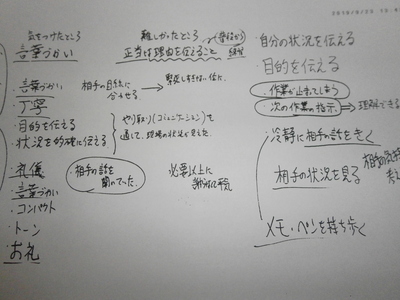 気をつけたところ
言葉づかい
・言葉づかい
・丁寧
・目的を伝える
・状況を的確に伝える
・礼儀
・言葉づかい
・コンパクト
・トーン
・お礼
難しかったところ
正当な理由を伝えること
相手の目線に
合わせる
やり取り(コミュニケーション)を
通して、現場の状況が見えた。
・相手の話を
聞いてった。
必要以上に
自分の状況を伝える
目的を伝える
・作業が止まってしまう
・次の作業の指示 ⇒ 理解できる
冷静に相手の話をきく
相手の状況を見る
メモ・ペンを持ち歩く